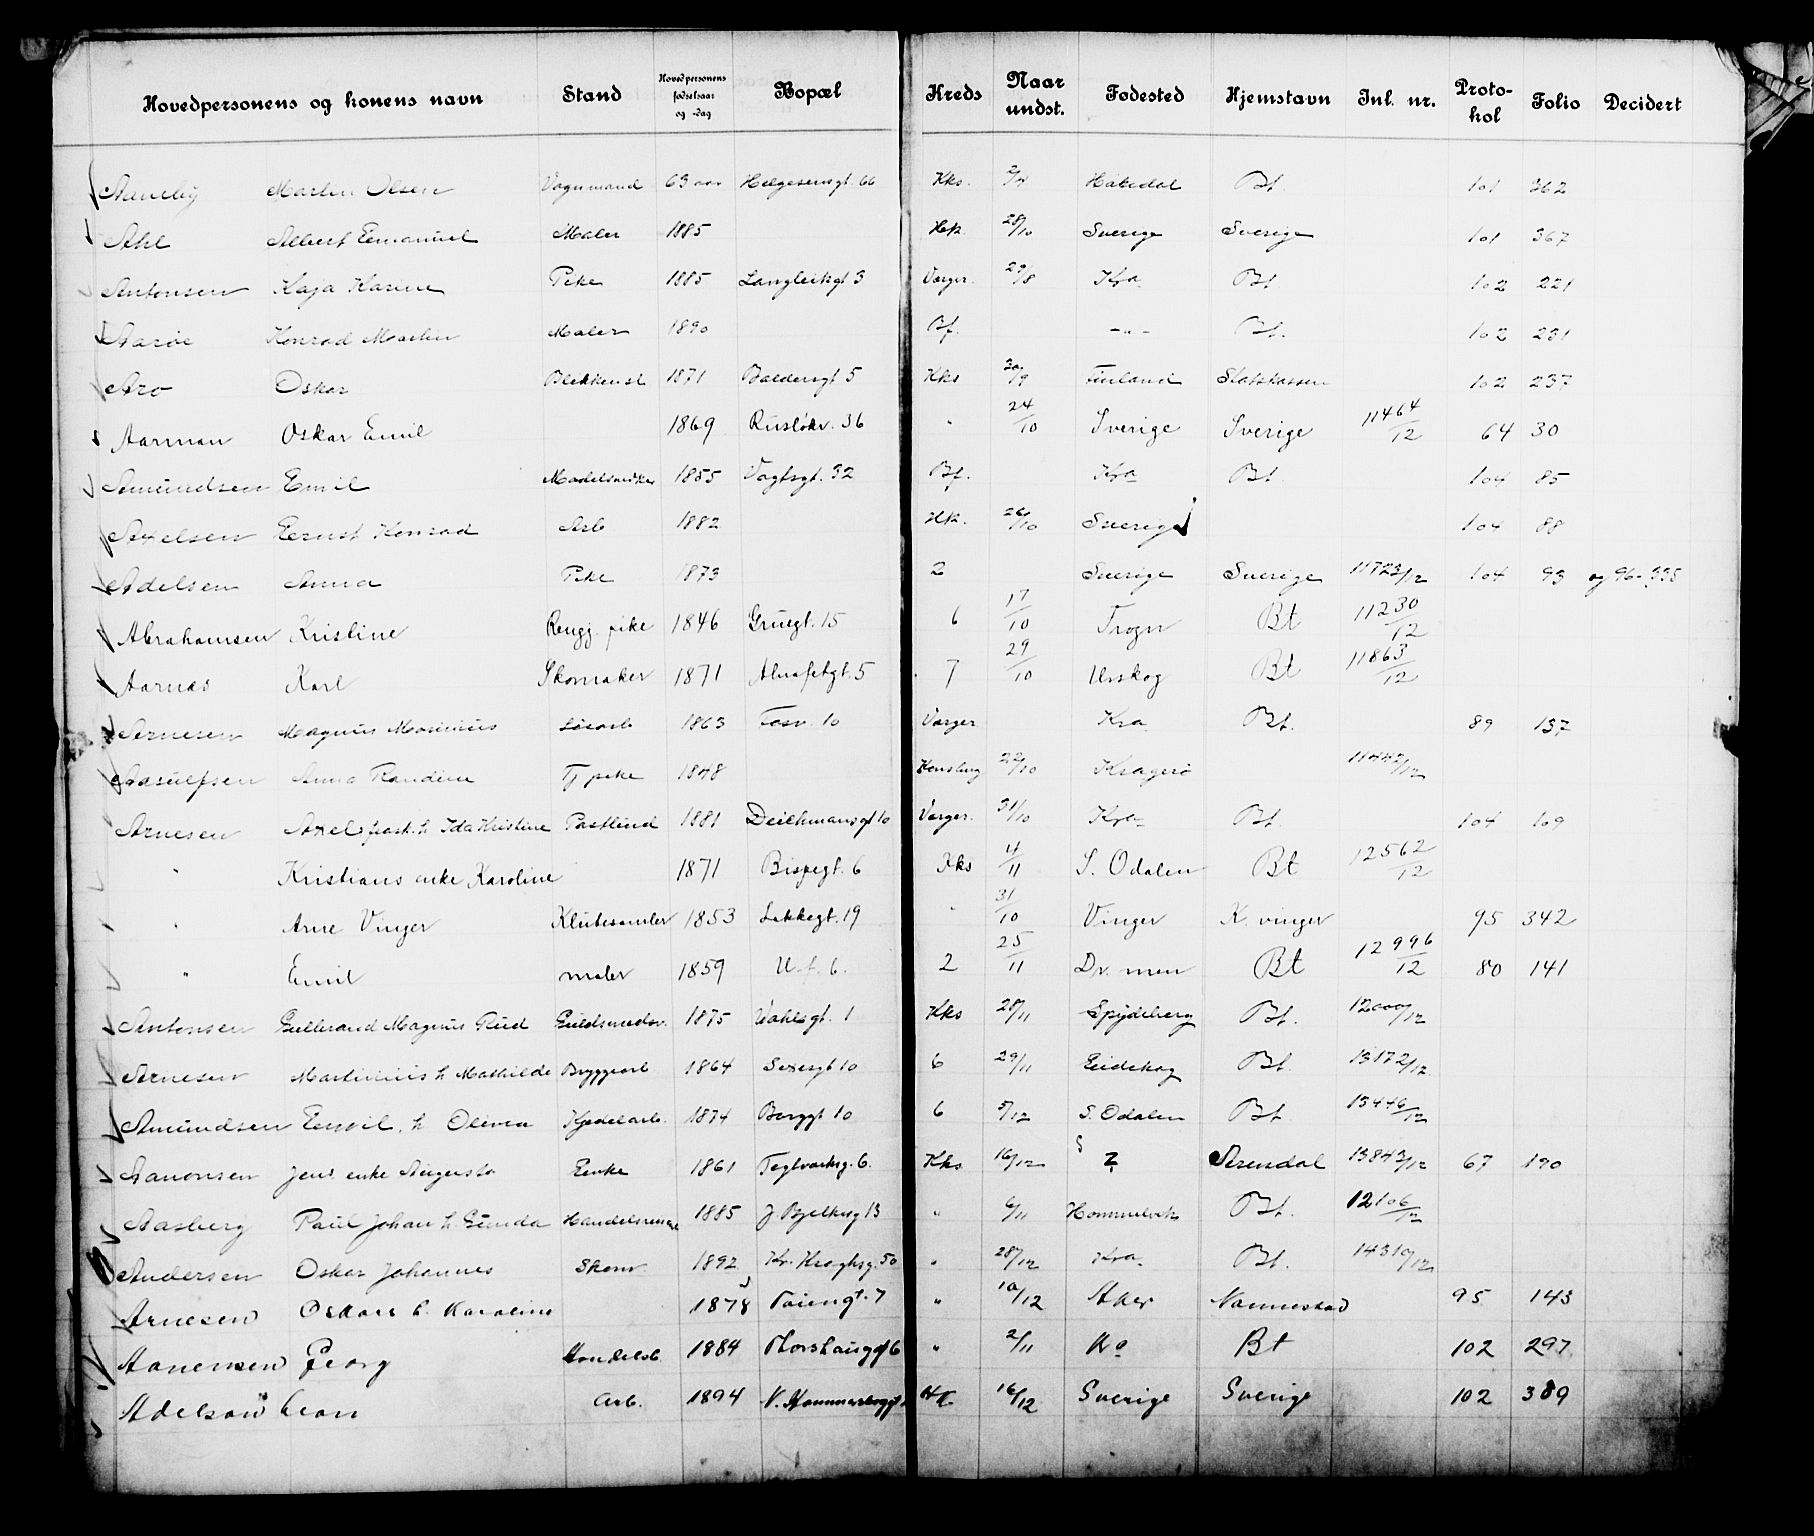 Hovedpersonens og konens navn Stand Hovedpersonens fødselsaar og -dag Bopæl Kreds Naar undst. Fødested Hjemstavn Inl. nr. Protokol Folio Decidert
Martin Olsen Vognmand 63 aar Helgesensgt. 66 Kks. Hakedal Bt. 101 362
Ahl Albert Emanuel Maler 1885 Hk. 28/10 Sverige Sverige 101 367
Antonsen Kaja Karine Pike 1885 Langleiksgt 3 Varger. 29/8 Kra Bt. 102 221
Aarøe Konrad Martin Maler 1890 Bf. -"- Bt. 102 231
Aro Oskar Blekkensl 1871 Baldersgt 5 Kks 30/9 Finland Statskassen 102 237
Aarman Oskar Emil 1869 Rusløkv. 36 " 24/10 Sverige Sverige 11464/12 64 30
Amundsen Emil Modelsnedker 1855 Vogtsgt. 32 Bf. Kra Bt. 104 85
Axelsen Ernst Konrad Arb 1882 Hk. 26/10 Sverige 104 88
Adelsen Anna Pike 1873 2 Sverige Sverige 11723/12 104 93 og 96-335
Abrahamsen Kristine Rengj. pike 1846 Grüegt. 15 6 17/10 Trogn Bt 11230/12
Aarnæs Karl Skomaker 1871 Alnafetgt. 5 7 29/10 Urskog Bt 11863/12
Arnesen Magnus Marinius Løsarb 1863 Fosv. 10 Varger Kra Bt. 89 137
Aasulfsen Anna Randine Tj pike 1848 Konsberg 22/10 Kragerø 11442/12
Arnesen Axel frask. h Ida Kristine Postbud 1881 Deichmansgt 10 Varger. 31/10 Kra Bt. 104 109
" Kristians enke Karoline 1871 Bispegt. 6 Kks 4/11 S. Odalen Bt 12562/12
" Arne Vinger Klutesamler 1853 Lakkegt. 19 " 31/10 Vinger K. vinger 95 342
" Emil maler 1859 U. f. 6. 2 25/11 Dr. men Bt 12996/12 80 141
Antonsen Gulbrand Magnus Rud Guldsmedsv. 1875 Vahlsgt. 1 Kks 28/11 Spydeberg Bt. 12000/12
Arnesen Martinius h Mathilde Bryggearb 1864 Sexesgt 10 6 29/11 Eidskog Bt. 13172/12
Amundsen Emil. h Olivia Kjedelarb. 1874 Borggt 10 6 5/12 S. Odalen Bt. 13446/12
Aanonsen Jens enke Augusta Enke 1861 Teglverksg. 6. Kks 16/12 ? Arendal 13843/12 67 190
Aasberg Paul Johan h. Gunda Handelsreisende 1885 J. Bjelkesg 13 " 6/11 Hommelvik Bt. 12106/12
Andersen Oskar Johannes Skom. 1892 Kr. Kroghsg. 50 " 28/12 Kra. Bt. 14310/12
Arnesen Oskars h. Karoline 1878 Tøiengt. 7 " 10/12 Aker Nannestad 95 143
Aanensen Georg Handelsb. 1884 Thorshauggt 6 " 2/11 Ka Bt 102 297
Adelson Leon Arb. 1894 N. Hammersborggt Hk 16/12 Sverige Sverige 102 389